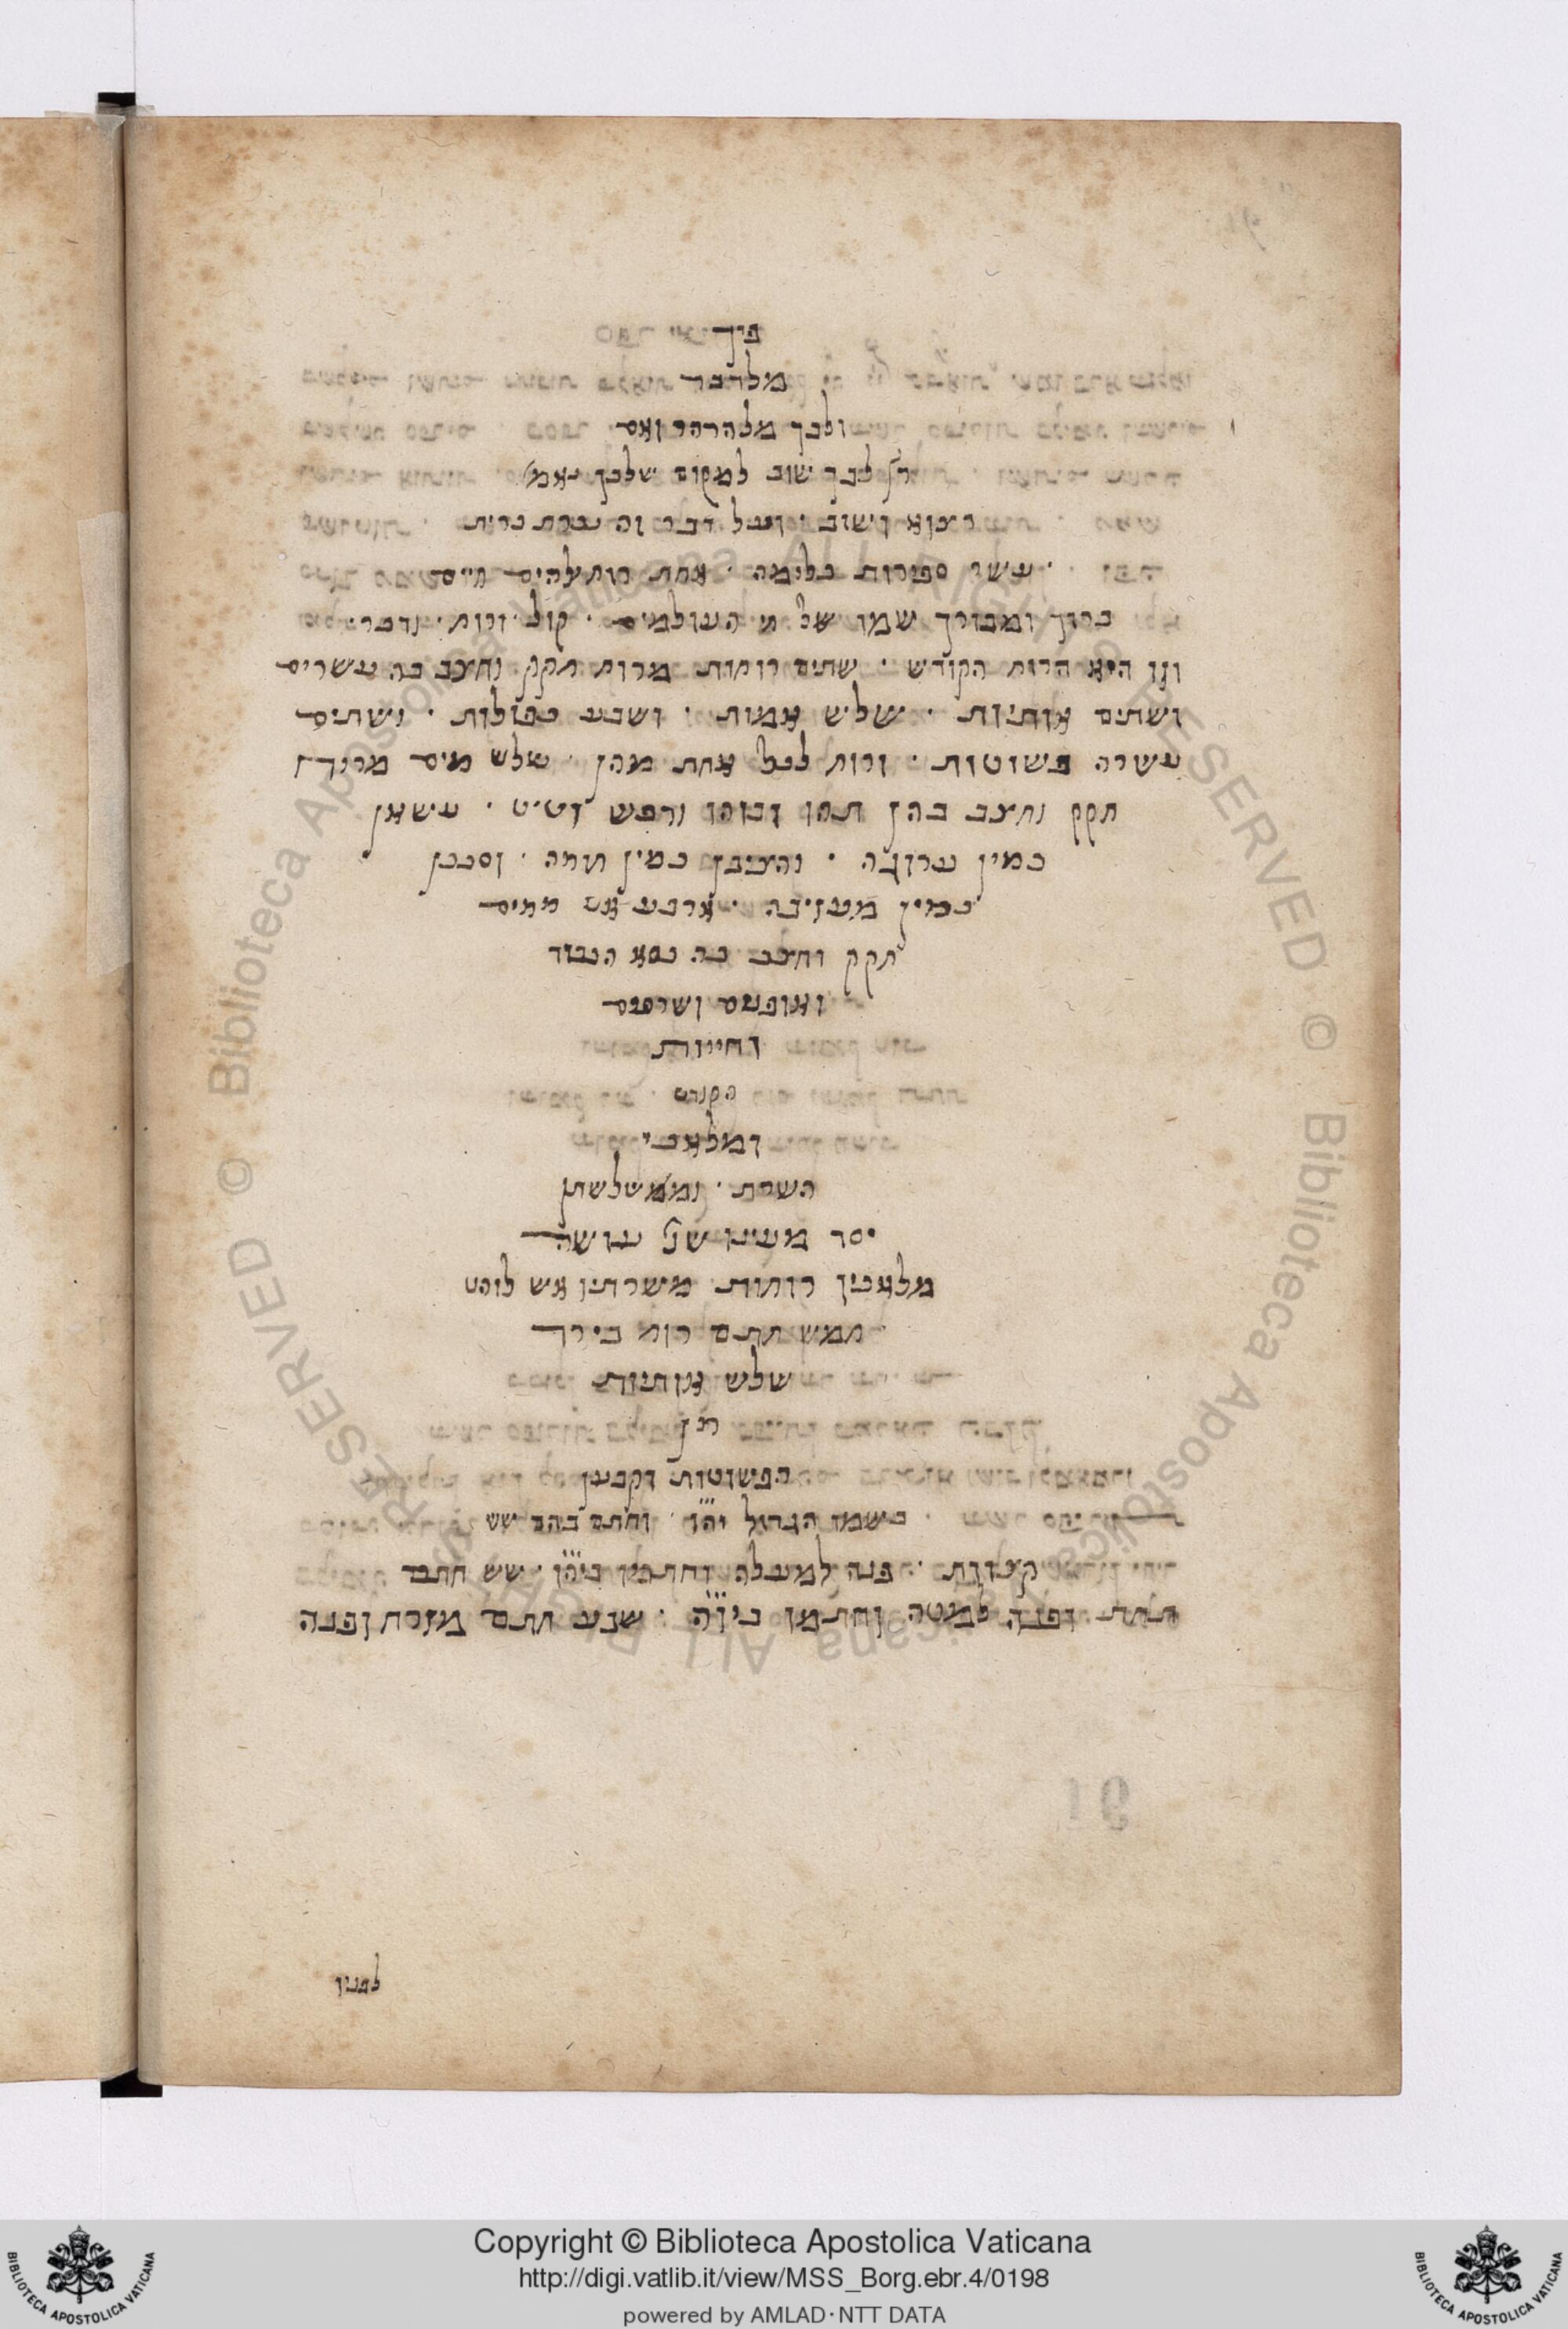 פיך
מלדבר
ולבך מלהרהר ואם
רץ לבך שוב למקום שלכך נאמ'
רצוא ושוב · ועל דבר זה נכרת ברית
עשר ספירות בלימה · אחת רוח אלהים חיים
ברוך ומבורך שמו של חי העולמים · קול ורוח ודבור ·
וזו היא הרוח הקודש · שתים רוחות מרוח חקק וחצב בה עשרים
ושתים אותיות · שלש אמות · ושבע כפולות · ושתים
עשרה פשוטות · ורוח לכל אחת מהן · שלש מים מרוח
חקק וחצב בהן תהו ובוהו ורפש וטיט · עשאן
כמין ערוגה · והציבן כמין חומה · וסככן
כמין מעזיבה · ארבע אש ממים
חקק וחצב בה כסא הכבוד
ואופנים ושרפים
וחיות
הקודש
ומלאכי
השרת · ומשלשתן
יסד מעונו שנ' עושה
מלאכיו רוחות משרתיו אש לוהט
חמש חתם רוח בירר
שלש אותיות
מן
הפשוטות וקבען
בשמו הגדול יהו · וחתם בהם שש
קצוות · פנה למעלה וחתמו ביהו · שש חתם
תחת ופנה למטה וחתמו ביוה · שבע חתם מזרח ופנה
לפניו
Copyright © Biblioteca Apostolica Vaticana
http://digi.vatlib.it/view/MSS_Borg.ebr.4/0198
powered by AMLAD · NTT DATA